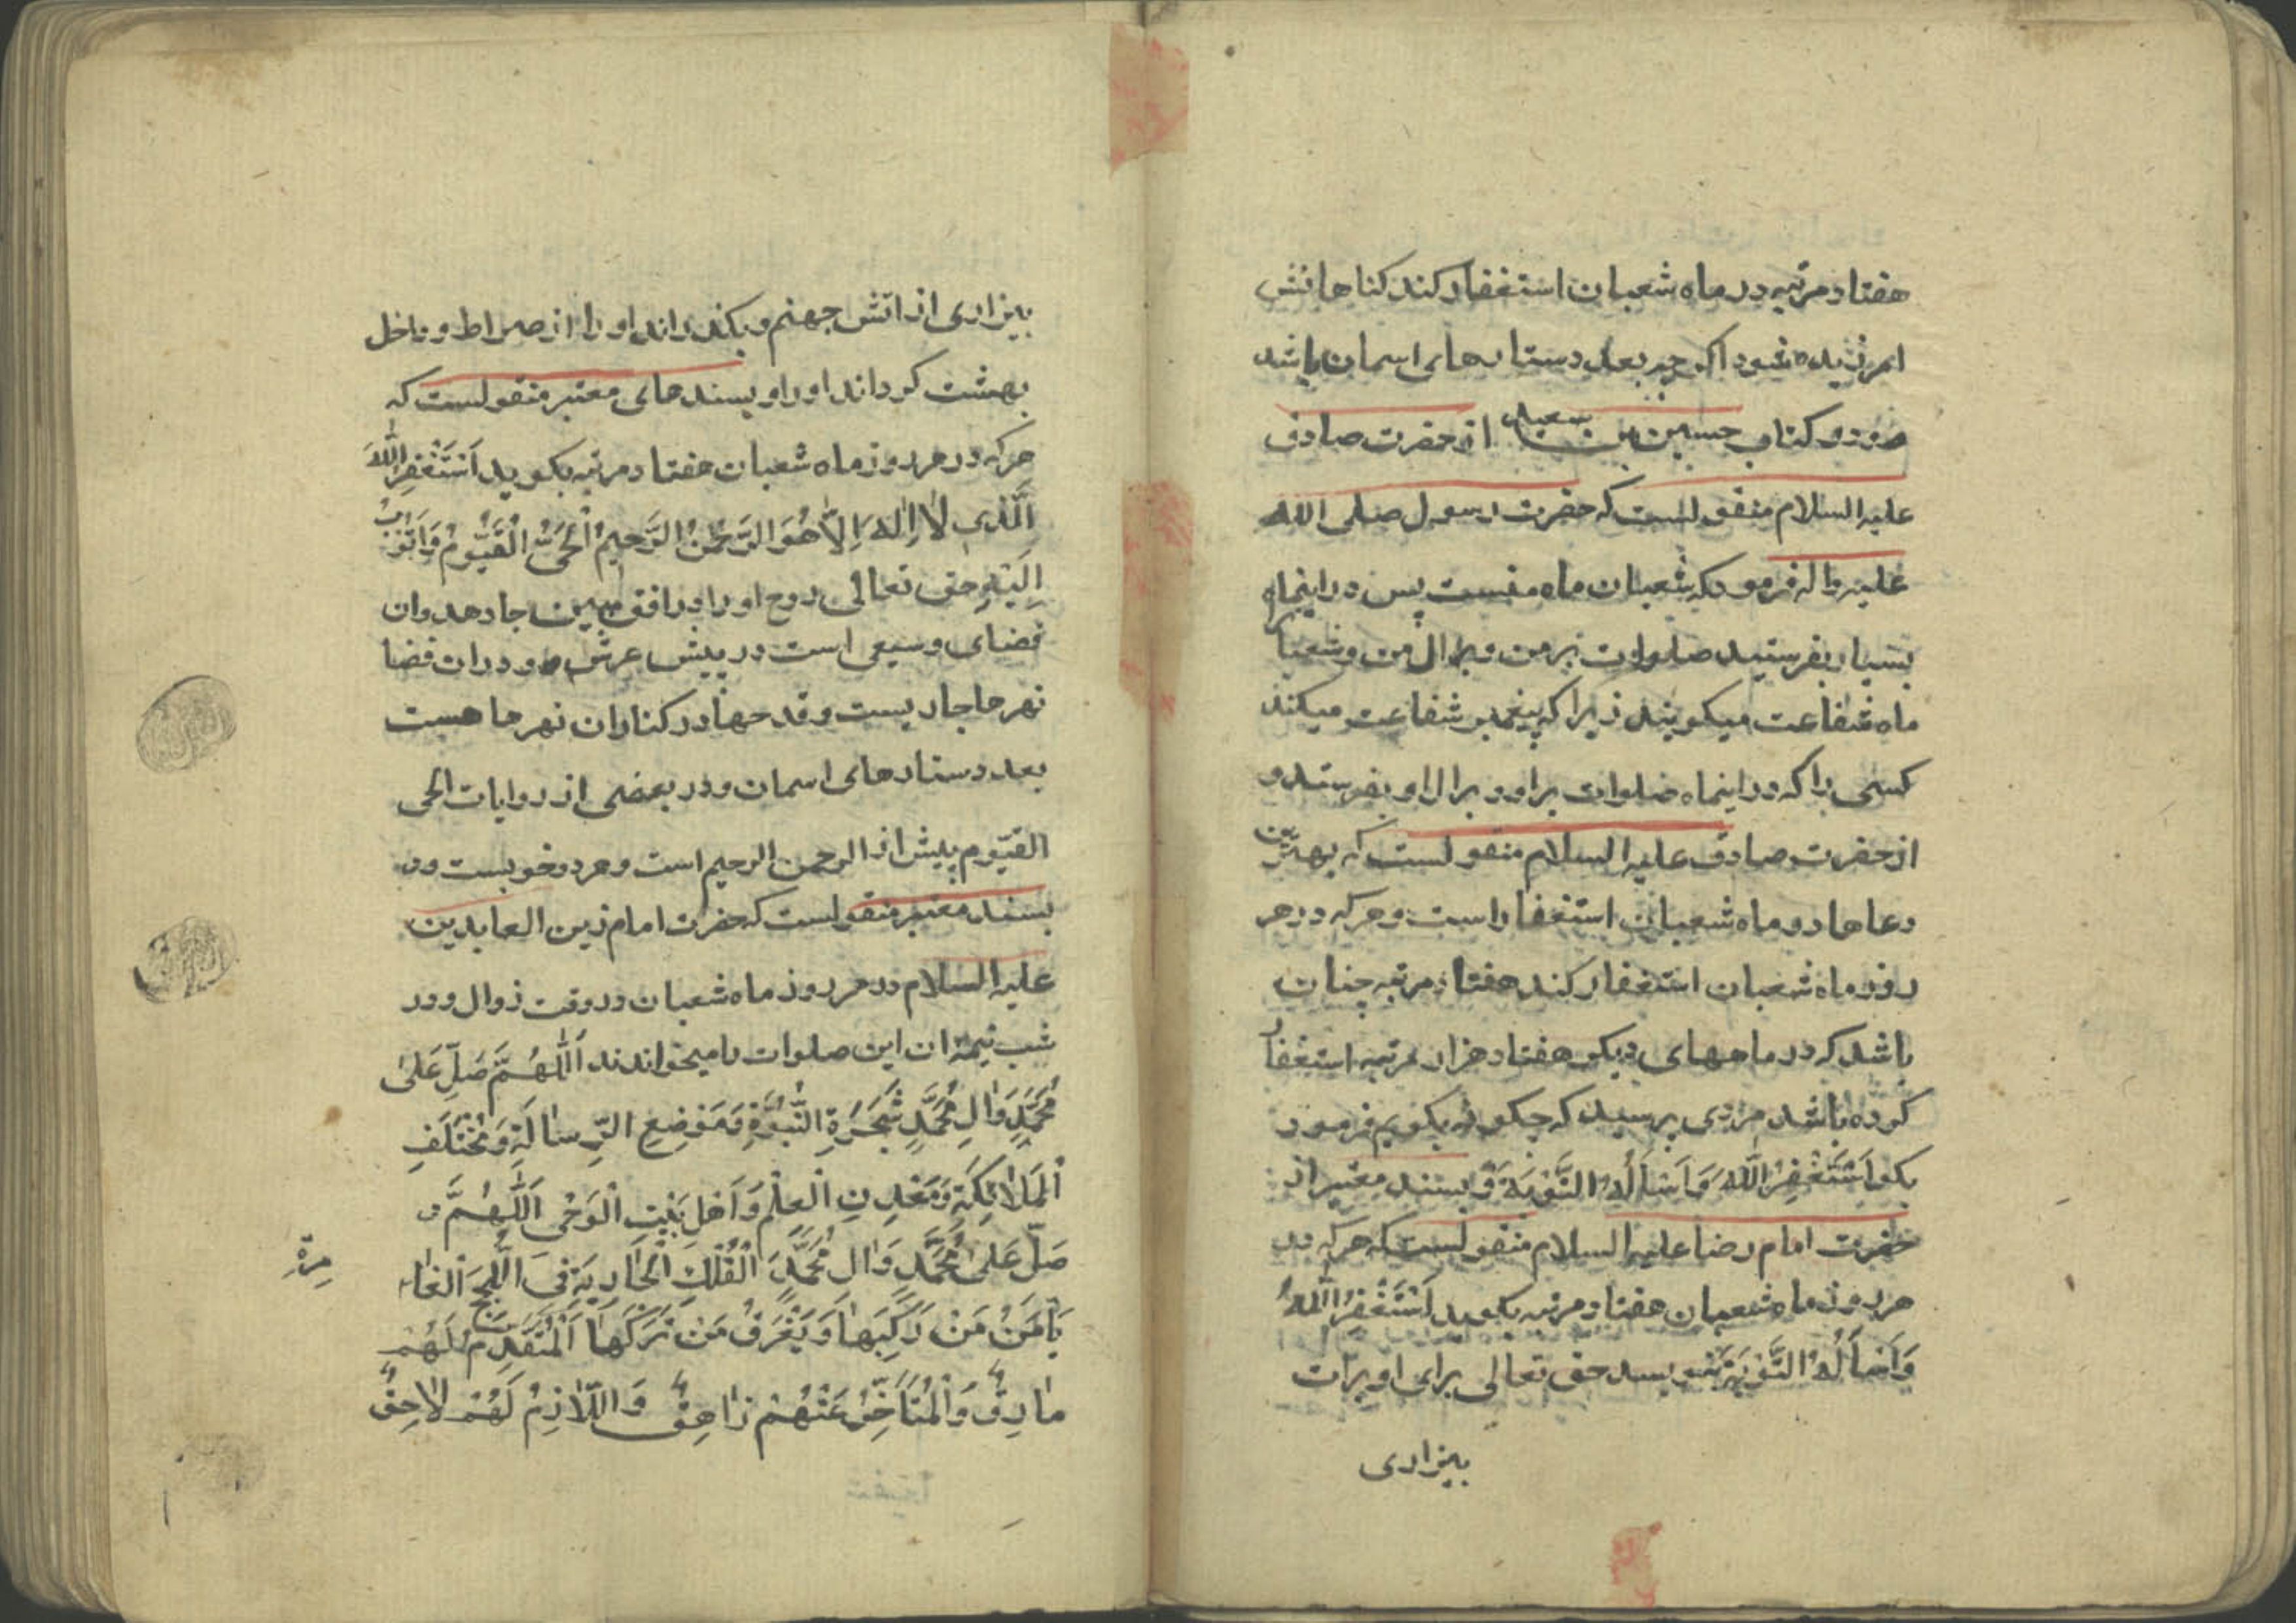 هفتاد مرتبه در ماه شعبان استغفار کند کناهانش
امرزیده شود اکرچه بعدد ستارهای اسمان باشد
و در کتاب حسین بن سعید از حضرت صادق
علیه السلام منقولست که حضرت رسول صلی الله
علیه واله فرمود که شعبان ماه منست پس در اینماه
بسیار بفرستید صلوات بر من و بر ال من و شعبانرا
ماه شفاعت میکویند زیرا که پیغمبر شفاعت میکند
کسی را که در اینماه صلوات بر او و بر ال او بفرستد و
از حضرت صادق علیه السلام منقولست که بهترین
دعاها در ماه شعبان استغفار است و هر که در هر
روز ماه شعبان استغفار کند هفتاد مرتبه چنان
باشد که در ماههای دیکر هفتاد هزار مرتبه استغفار
کرده باشد مردی پرسید که چکونه بکویم فرمود
بکو اَسْتَغْفِرُ اللّٰهَ وَاَسْاَلُهُ التَّوْبَةَ و بسند معتبر از
حضرت امام رضا علیه السلام منقولست که هر که در
هر روز ماه شعبان هفتاد مرتبه بکوید اَسْتَغْفِرُ اللّٰهَ
وَاَسْاَلُهُ التَّوْبَةَ بنویسد حق تعالی برای او برات
بیزاری
بیزاری از اتش جهنم و بکذراند او را از صراط و داخل
بهشت کرداند او را و بسندهای معتبر منقولست که
هر که در هر روز ماه شعبان هفتاد مرتبه بکوید اَسْتَغْفِرُ اللّٰهَ
الَّذی لاٰ اِلٰهَ اِلاّٰ هُوَ الرَّحْمٰنُ الرَّحیمُ الْحَیُّ الْقَیُّومُ وَاَتُوبُ
اِلَیْهِ حق تعالی روح او را در افق مبین جا دهد و ان
فضای وسیعی است در پیش عرش و در ان فضا
نهرها جاریست و قدحها در کنار ان نهرها هست
بعدد ستارهای اسمان و در بعضی از روایات الحی
القیّوم پیش از الرحمن الرحیم است و هر دو خوبست و در
بسند معتبر منقولست که حضرت امام زین العابدین
علیه السلام در هر روز ماه شعبان در وقت زوال و در
شب نیمهٔ ان این صلوات را میخواندند اَللّٰهُمَّ صَلِّ عَلیٰ
مُحَمَّدٍ وَاٰلِ مُحَمَّدٍ شَجَرَةِ النُّبُوَّةِ وَمَوْضِعِ الرِّسٰالَةِ وَمُخْتَلَفِ
الْمَلاٰئِکَةِ وَمَعْدِنِ الْعِلْمِ وَاَهْلِ بَیْتِ الْوَحْیِ اَللّٰهُمَّ
صَلِّ عَلیٰ مُحَمَّدٍ وَاٰلِ مُحَمَّدٍ اَلْفُلْکِ الْجٰارِیَةِ فِی اللُّجَجِ الْغٰا
مِرَةِ
یَأْمَنُ مَنْ رَکِبَهٰا وَیَغْرَقُ مَنْ تَرَکَهٰا اَلْمُتَقَدِّمُ لَهُمْ
مٰارِقٌ وَالْمُتَاَخِّرُ عَنْهُمْ زٰاهِقٌ وَاللّاٰزِمُ لَهُمْ لاٰحِقٌ